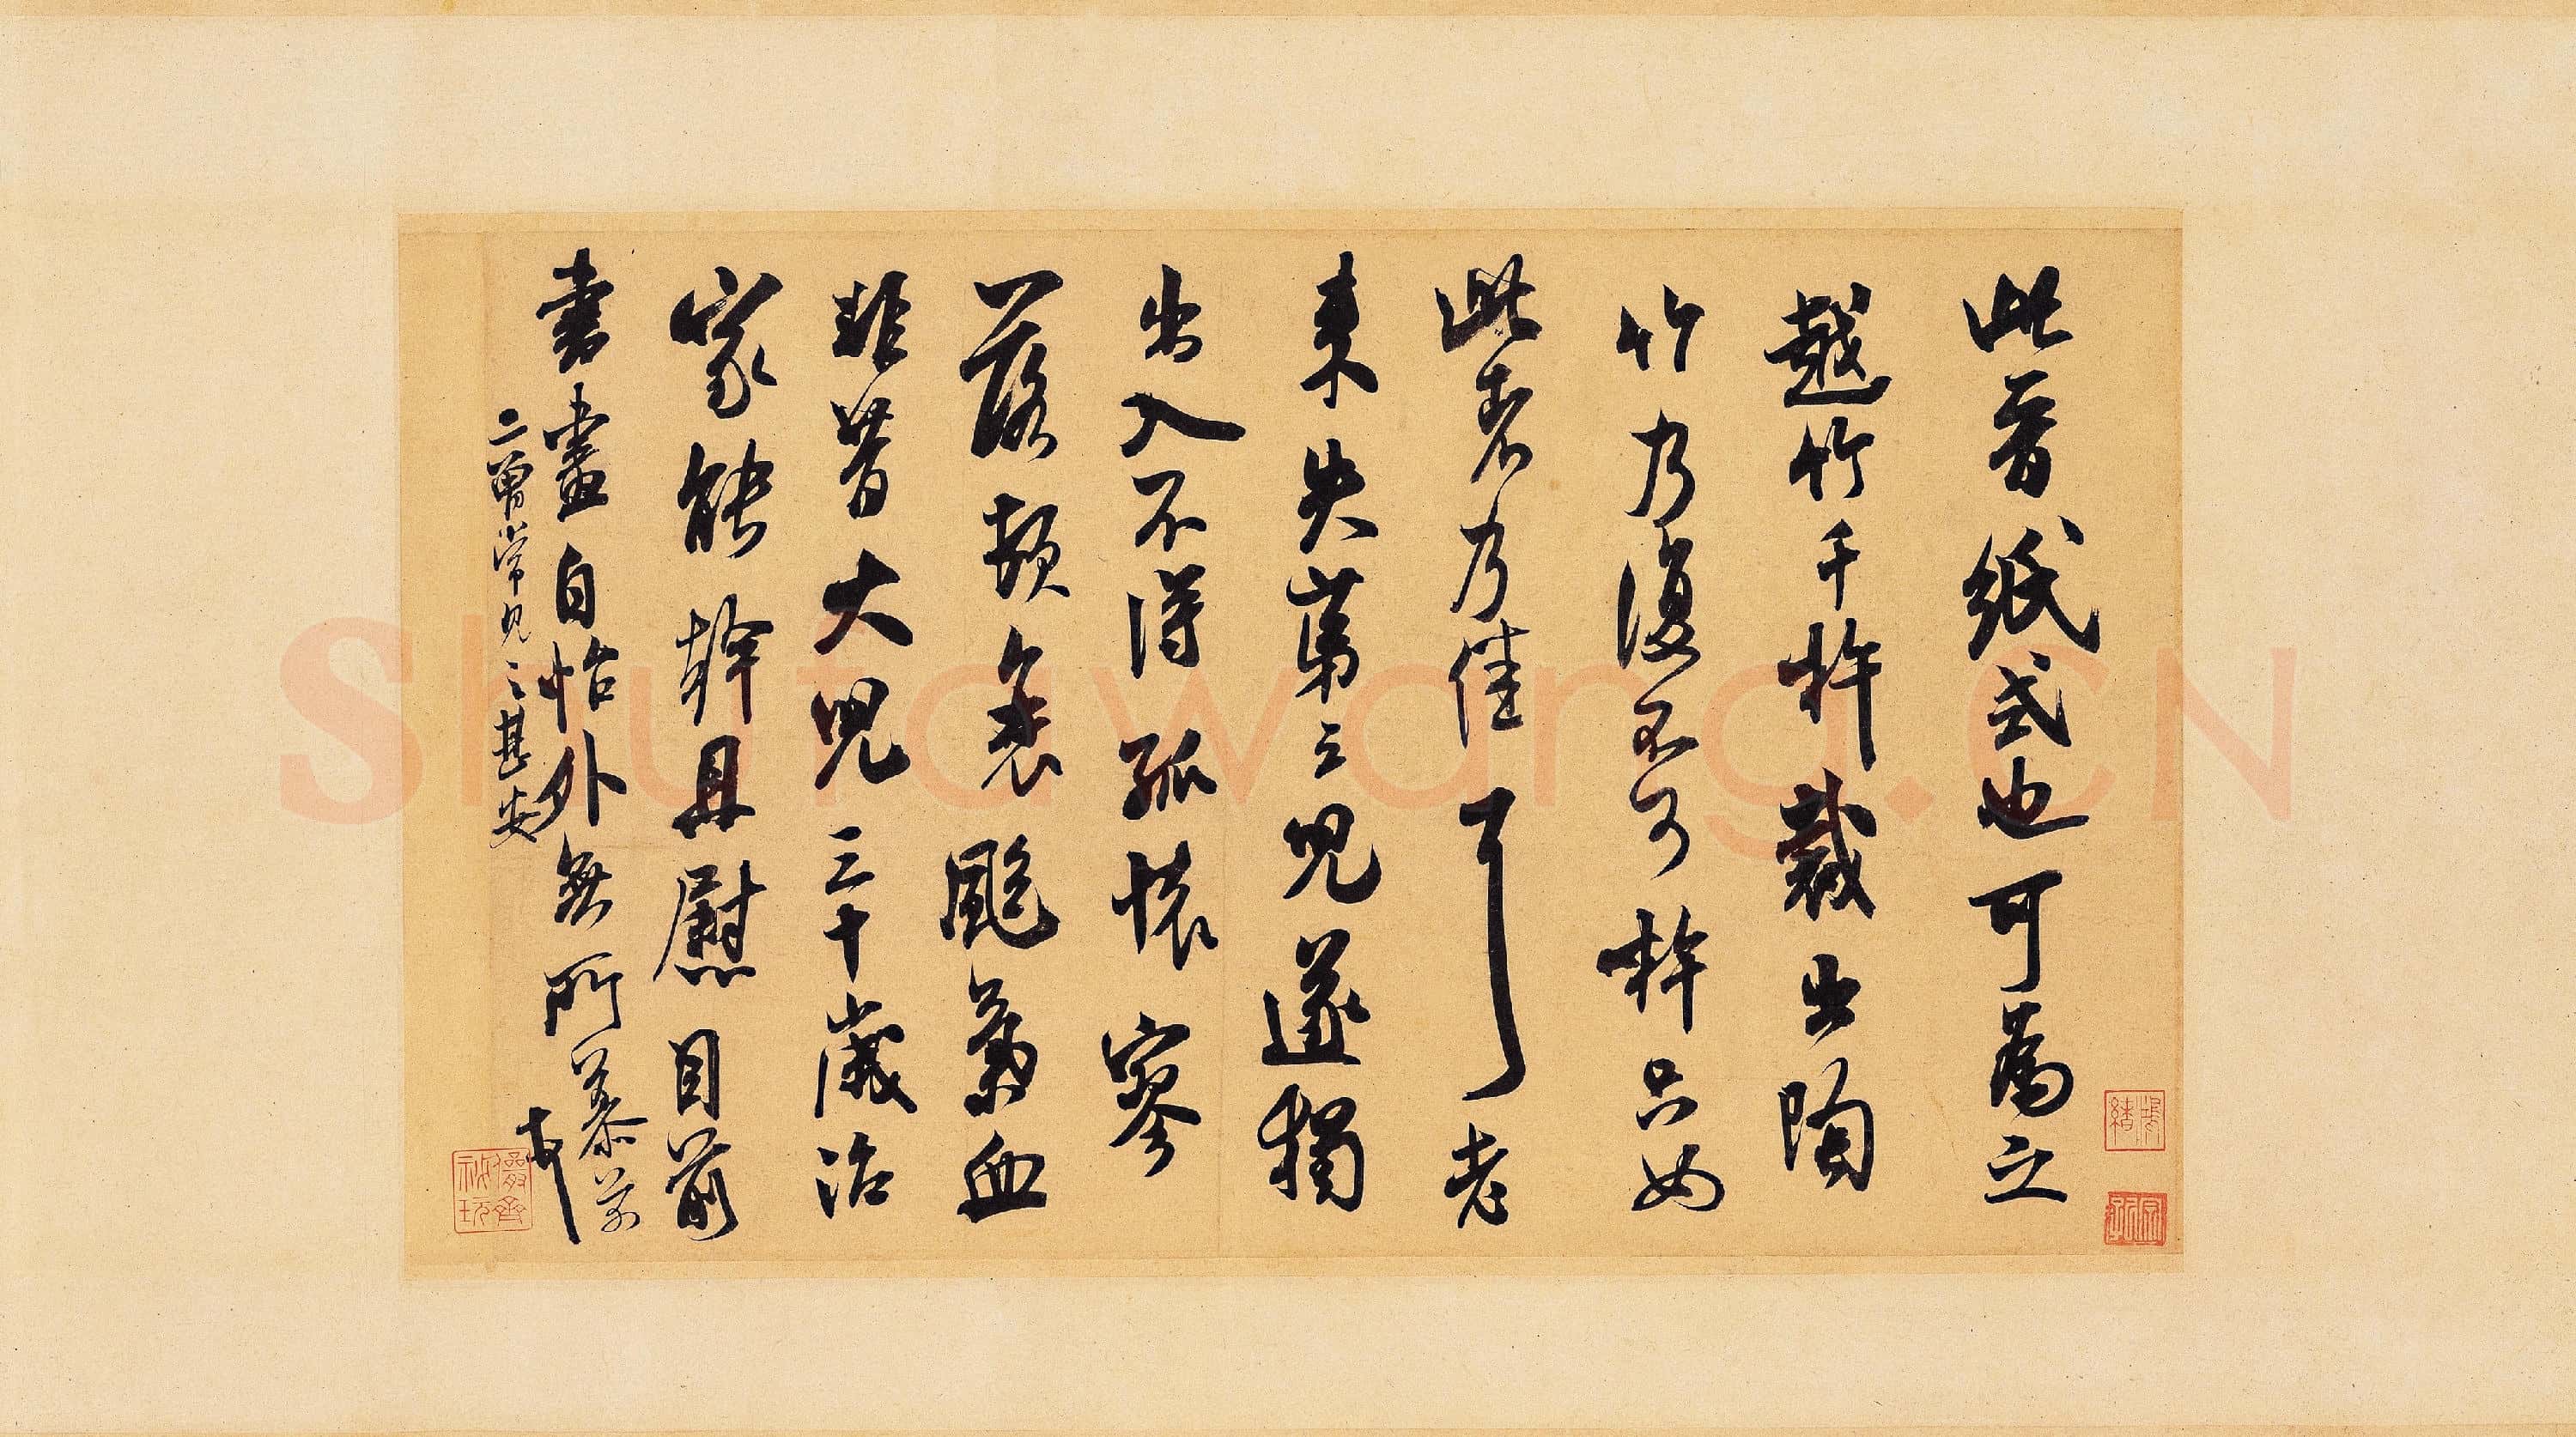 此晋紙式也可為之
越竹千杵裁出陶
竹乃復不可杵只如
此者乃佳耳老
来失第三児遂獨
出入不得孤懐寥
落頓衰颷氣血
非昔大児三十歳治
家能幹且慰目前
書畫自怡外無所慕芾
二曽常見之甚安
Shufawang.CN